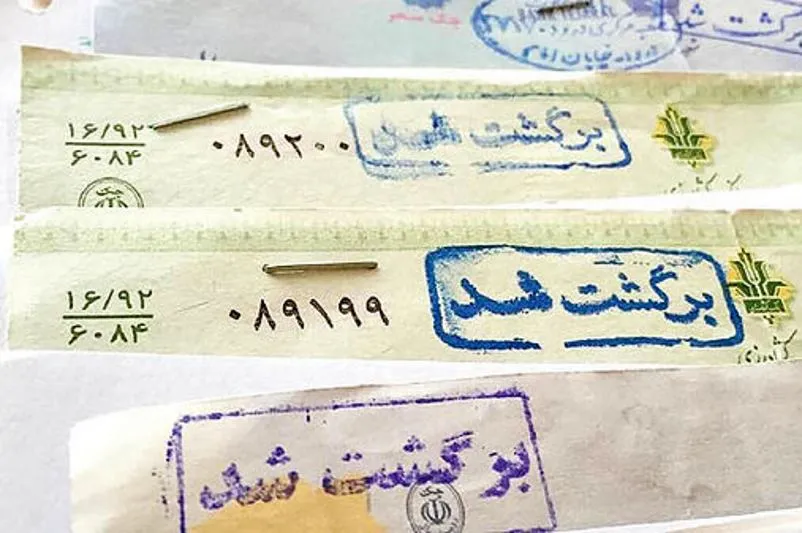 برگشت شد
خیابان
۱۶/۹۲
۶۰۸۴
۰۸۹۲۰۰
برگشت شد
۱۶/۹۲
۶۰۸۴
۰۸۹۱۹۹
برگشت شد
کشاورزی
برگشت شد